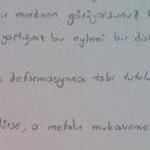 ır merdiven görüyorsunuz
yaptığınız bu eylemi bir
deformasyona tabi tutul
ürse, o metalin mukaveme